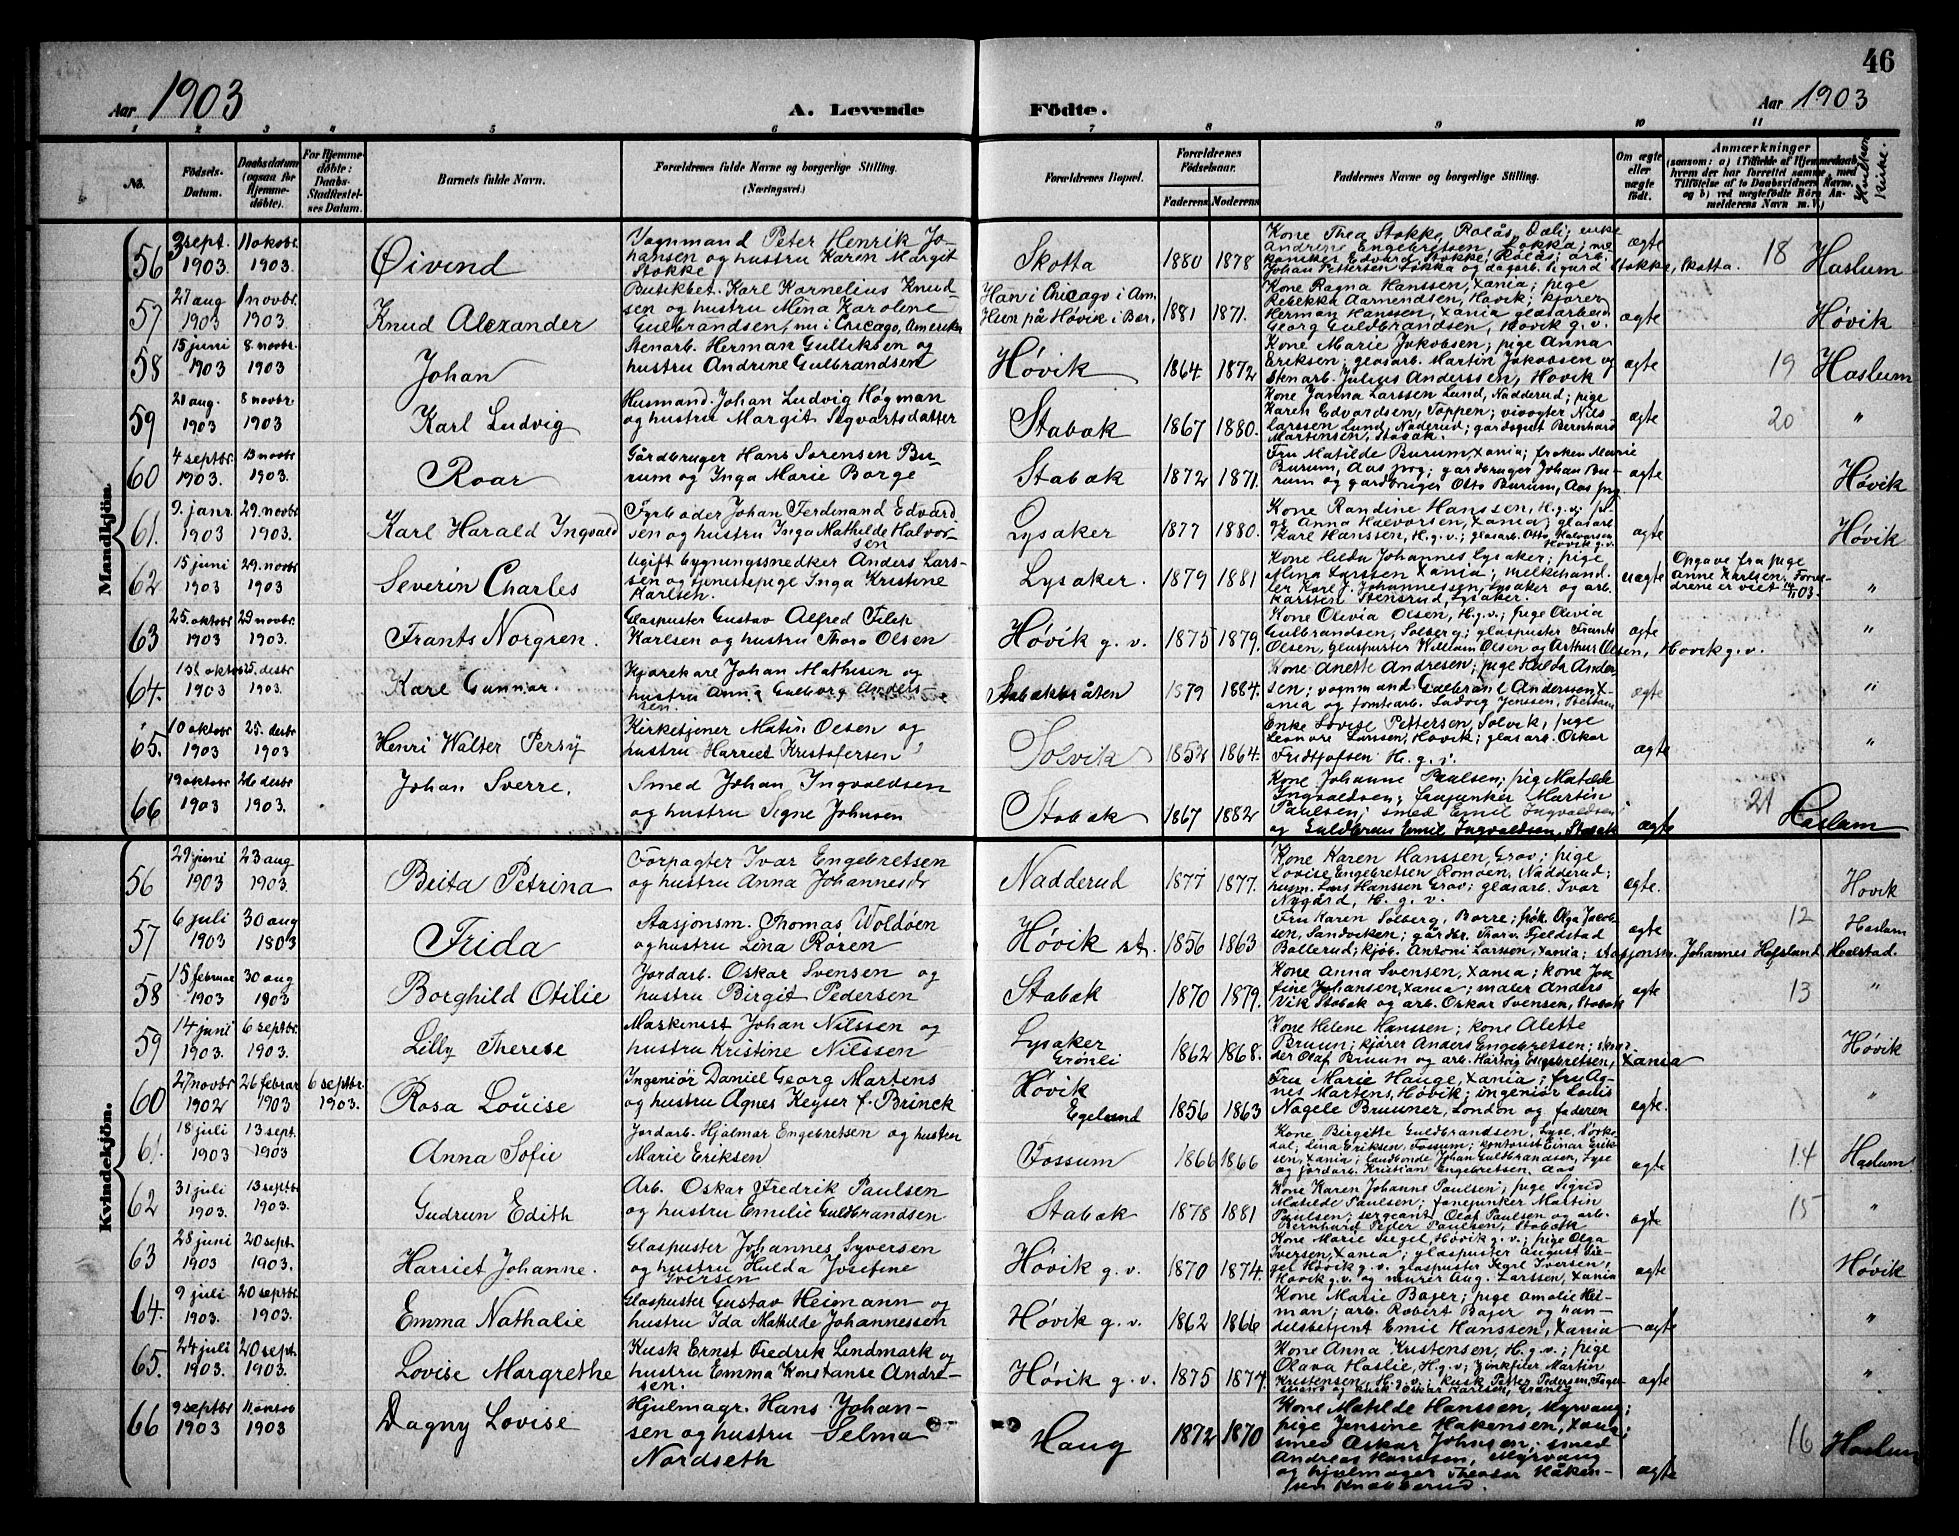 46
Aar 1903
A. Levende Födte.
Aar 1903
1 2 3 4 5 6 7 8 9 10 11
No.
Födsels-Datum.
Daabsdatum (ogsaa for Hjemme-döbte).
For Hjemme-döbte: Daabs-Stadfæstel-ses Datum.
Barnets fulde Navn.
Forældrenes fulde Navne og borgerlige Stilling. (Næringsvei.)
Forældrenes Bopæl.
Forældrenes Födselsaar.
Faderens Moderens
Faddernes Navne og borgerlige Stilling.
Om ægte eller uægte födt.
Anmærkninger
(saasom: a) i Tilfælde af Hjemmedaab, hvem der har forrettet samme, med Tilföielse af to Daabsvidners Navne. og b) ved uægtefödte Börn An-melderens Navn m. V.)
Hvilken Kirke.
Mandkjön.
56 3 sept. 1903. 11 oktobr. 1903. Øivind
Vognmand Peter Henrik Jo-
hansen og hustru Karen Margit
Stokke
Skotta 1880 1878
Kone Thea Stokke, Kolås, Dæli; enke
Andrine Engebretsen, Løkka; me
kaniker Edvard Stokke, Kolås; arb.
Johan Pettersen Løkka og dagarb. Sigurd Stokke, Skotta.
ægte 18 Haslum
57 27 aug 1903 1 novbr. 1903. Knud Alexander
Butikbet. Karl Kornelius Knud-
sen og hustru Mina Karoline
Gulbrandsen, nu i Chicago, Amerika
Han i Chicago i Am.
Hun på Høvik i Bær.
1881 1871.
Kone Ragna Hanssen, Xania; pige
Rebekka Aamendsen, Høvik; kjører
Herman Hanssen, Xania glasarbeid
Georg Guldbrandsen, Høvik g. v.
ægte Høvik
58 15 juni 1903 8 novbr. 1903 Johan
Stenarb. Herman Gulliksen og
hustru Andrine Gulbrandsen
Høvik 1864 1872
Kone Marie Jakobsen; pige Anna
Eriksen; glasarb. Martin Jakobsen og
Stenarb. Julius Anderssen, Høvik
ægte 19 Haslum
59 21 aug. 1903 8 novbr. 1903 Karl Ludvig
Husmand. Johan Ludvig Høgman
og hustru Margit Sigvartsdatter
Stabæk 1867 1880.
Kone Janna Larssen Lund, Nadderud; pige
Karen Edvardsen, Toppen; vivogter Nils
Larssen Lund, Naderud; gardsgut Bernhard
Martensen, Stabæk.
ægte 20 "
60 4 septbr. 1903. 13 novbr 1903. Roar
Gårdbruger Hans Sørensen Bu-
rum og Inga Marie Borge
Stabæk 1872 1871.
Fru Matilde Burum, Xania; frøken Marie
Burum, Aas prg; gardbruger Johan Bu-
rum og gardbruger Otto Burum, Aas prg.
ægte Høvik
61. 9. janr. 1903 29. novbr 1903. Karl Harald Ingvald
Fyrbøder Johan Ferdinand Edvard
sen og hustru Inga Mathilde Halvor-
sen
Lysaker 1877 1880.
Kone Randine Hanssen, H.g.v; pi-
ge Anna Halvorsen, Xania; glasarb
Karl Hanssen, H. g. v.; glasarb. Otto Halvorsen
Høvik g. v.
ægte Høvik
62 15 juni 1903 29. novbr 1903 Severin Charles
Ugift bygningssnedker Anders Lars-
sen og tjenestepige Inga Kristine
Karlsen.
Lysaker. 1879 1881
Kone Hilda Johannes Lysaker; pige
Alma Larssen Xania; melkehand.
ler Karl J. Johannessen, Lysaker og arb.
Karsten Stensrud, Lysaker.
uægte
Opgave fra pige
Anne Karlsen. Foræl-
drene er viet 14/11 03.
"
63 25. oktobr 1903 29 novbr 1903. Frants Norgren.
Glaspuster Gustav Alfred Filip
Karlsen og hustru Thora Olsen
Høvik g. v. 1875 1879.
Kone Olivia Olsen, H. g. v.; pige Olivia
Gulbrandsen, Solberg; glaspuster Frants
Olsen, glaspuster William Olsen og Arthur Olsen, Høvik g. v.
ægte "
64. 1903 25. desbr 1903. Karl Gunnar.
Kjørekarl Johan Mathisen og
hustru Anna Gulborg Anders
sen.
Stabækbråten 1879 1884.
Kone Anette Andresen; pige Hulda Ander
sen; vognmand Gulbrand Anderssen, X-
ania og tomtearb. Ludvig Jenssen, Bestum
ægte "
65. 10 oktobr 1903 25. desbr 1903 Henri Walter Persy
Kirketjener Matin Olsen og
hustru Harriet Kristofersen
Solvik 1852 1864.
Enke Lovise Pettersen, Solvik; pige
Leonore Larssen, Høvik; glasarb. Oskar
Fridtjofsen H. g. v.
ægte "
66 19 oktobr 1903 26 desbr 1903. Johan Sverre.
Smed Johan Ingvaldsen
og hustru Signe Johnsen
Stabæk 1867 1882
Kone Johanne Paulsen; pig Matilde
Ingvaldsen; fanejunker Martin
Paulsen; smed Emil Ingvaldsen
og Guldbran Emil Ingvaldsen, Stabæk
ægte 21 Haslum
Kvindekjön.
56 29 juni 1903 23 aug 1903. Beita Petrina
Forpagter Ivar Engebretsen
og hustru Anna Johannesdr
Nadderud 1877 1877.
Kone Karen Hanssen, Grav; pige
Lovise Engebretsen Romøen, Nadderud;
husm. Lars Hanssen Grav; glasarb. Ivar
Nygård, H. g. v.
ægte. Høvik
57 6 juli 1903 30 aug 1803 Frida
Stasjonsm. Thomas Woldøen
og hustru Lina Røren
Høvik st. 1856 1863
Fru Karen Solberg, Borre; frøk. Olga Jacob-
sen, Sandviken; gårdbr. Thorv. Fjeldstad
Ballerud; kjøb. Antoni Larssen, Xania; stasjonsm. Johannes Hofsland, Hvalstad.
ægte 12 Haslum
58 15 februar 1903 30 aug 1903 Borghild Otilie
Jordarb. Oskar Svensen og
hustru Birgit Pedersen
Stabæk 1870 1879.
Kone Anna Svensen, Xania; kone Jon
fine Johansen, Xania; maler Anders
Vik Stabæk og arb. Oskar Svensen, Stabæk
ægte 13 "
59 14 juni 1903. 6 septbr. 1903. Lilly Therese
Maskinist Johan Nilssen og
hustru Kristine Nilssen
Lysaker
Grønli
1862 1868.
Kone Helene Hanssen; kone Alette
Bruun; kjører Anders Engebretsen;
der Olaf Bruun og arb. Hartvig Engebretsen, Xania
Høvik
60 27 novbr 1902 26 februar 1903 6 septbr. 1903. Rosa Louise
Ingeniør Daniel Georg Martens
og hustru Agnes Keyser f. Brinck
Høvik
Egelund
1856 1863
Fru Marie Hauge, Xania; fru Ag-
nes Martens, Høvik; ingeniør Louis
Nagele Bruuner, London og faderen
ægte. "
61. 18 juli 1903 13 sept. 1903 Anna Sofie
Jordarb. Hjalmar Engebretsen og hustru
Marie Eriksen
Fossum 1866 1866
Kone Birgitte Guldbrandsen, Lyse, Sørke-
dal; Lina Eriksen, Fossum; kontorist Einar Erik-
sen, Xania; landbonde Johan Guldbrandsen, Lyse
og jordarb. Kristian Engebretsen. Aas
ægte 14 Haslum
62 31 juli 1903. 13 septbr 1903. Gudrun Edith
Arb. Oskar Fredrik Paulsen
og hustru Emilie Guldbrandsen
Stabæk 1878 1881
Kone Karen Johanne Paulsen; pige Sigrid
Matilde Paulsen; fanejunker Martin
Paulsen; sergeant Olaf Paulsen og arb.
Bernhard Peder Paulsen, Stabæk
ægte 15 "
63 28 juni 1903 20 sept. 1903. Harriet Johanne.
Glaspuster Johannes Syversen
og hustru Hulda Josefine
Iversen
Høvik g. v. 1870 1874.
Kone Marie Siegel, Høvik g. v.; pige Olga
Iversen, Xania; glaspuster August Sie-
gel Høvik g. v. glaspuster Karl Iversen,
Høvik g. v. og murer Aug. Larssen, Xania
ægte Høvik
64. 9 juli 1903. 20 septbr 1903. Emma Nathalie
Glaspuster Gustav Heimann og
hustru Ida Mathilde Johannessen
Høvik g. v. 1862 1866
Kone Marie Bajer; pige Amalie Hei-
man; arb. Robert Bajer og han-
delsbetjent Emil Hanssen, Xania
ægte "
65. 24 juli 1903. 20 sept. 1903. Lovise Margrethe
Kusk Ernst Fredrik Lindmark og
hustru Emma Konstanse Andre-
sen.
Høvik g. v. 1875 1874.
Kone Anna Kristensen, H. g. v.; pige
Olava Haslie, H. g. v; Zinkfiler Martin
Kristensen, H. g. v.; kusk Petter Pedersen,
og kusk Oskar Karlsen, Granly
ægte "
66 9 septbr 1903 1903 Dagny Lovise
Hjulmagr. Hans Johan-
sen og hustru Selma
Nordseth
Haug 1872 1870
Kone Matilde Hanssen, Myrvang;
pige Jensine Hakensen, Xania;
smed Oskar Johnsen; smed
Andreas Hanssen, Myrvang
og hjulmager Theodor Håken-
sen Knabberud.
ægte 16 Haslum